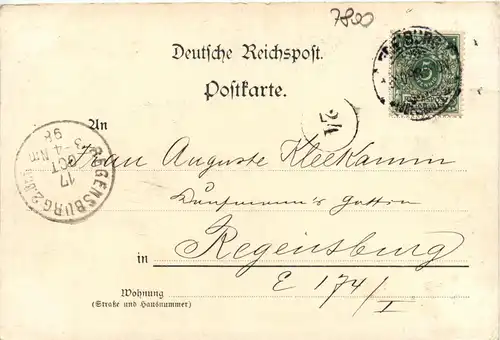 7800
Deutsche Reichspost.
Postkarte.
5
An
Frau Auguste Kleekamm
Kaufmann's Gattin
in Regensburg
E 174/I
Wohnung
(Straße und Hausnummer)
REGENSBURG 2.
17
OCT
3-4 Nm
98